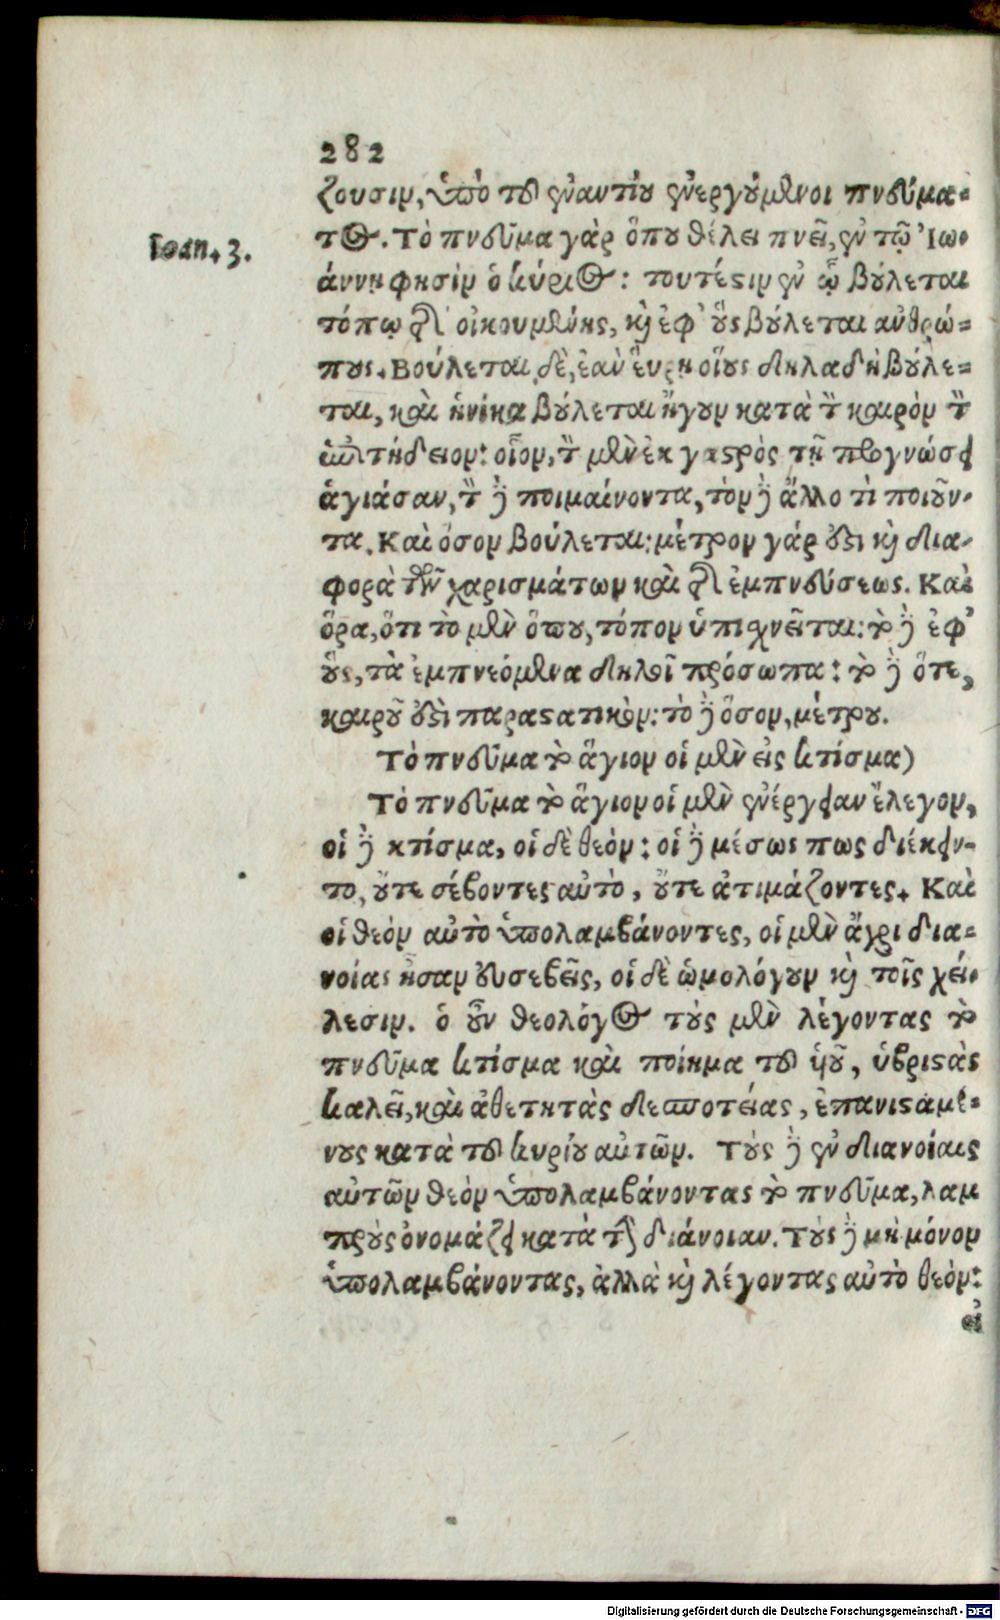 282
ζουσιν, ὑπὸ τοῦ ἐναντίου ἐνεργούμενοι πνεύμα-
τος. Τὸ πνεῦμα γὰρ ὅπου θέλει πνεῖ, ἐν τῷ Ἰω-
Ioan. 3.
άννῃ φησὶν ὁ κύριος: τουτέστιν ἐν ᾧ βούλεται
τόπῳ τῆς οἰκουμένης, καὶ ἐφ' οὓς βούλεται ἀνθρώ-
πους. Βούλεται δὲ, ἐὰν εὕρῃ οἵους δηλαδὴ βούλε-
ται, καὶ ἡνίκα βούλεται ἤγουν κατὰ τὸν καιρὸν τὸν
ἐπιτήδειον: οἷον, τὸν μὲν ἐκ γαστρὸς τῇ προγνώσει
ἁγιάσαν, τὸν δὲ ποιμαίνοντα, τὸν δὲ ἄλλο τὶ ποιοῦν-
τα. Καὶ ὅσον βούλεται: μέτρον γάρ ἐστι καὶ δια-
φορὰ τῶν χαρισμάτων καὶ τῆς ἐμπνεύσεως. Καὶ
ὅρα, ὅτι τὸ μὲν ὅπου, τόπον ὑπισχνεῖται: τὸ δὲ ἐφ'
οὓς, τὰ ἐμπνεόμενα δηλοῖ πρόσωπα: τὸ δὲ ὅτε,
καιροῦ ἐστὶ παραστατικὸν: τὸ δὲ ὅσον, μέτρου.
Τὸ πνεῦμα τὸ ἅγιον οἱ μὲν εἰς κτίσμα)
Τὸ πνεῦμα τὸ ἅγιον οἱ μὲν ἐνέργειαν ἔλεγον,
οἱ δὲ κτίσμα, οἱ δὲ θεὸν: οἱ δὲ μέσως πως διέκειν-
το, οὔτε σέβοντες αὐτὸ, οὔτε ἀτιμάζοντες. Καὶ
οἱ θεὸν αὐτὸ ὑπολαμβάνοντες, οἱ μὲν ἄχρι δια-
νοίας ἦσαν εὐσεβεῖς, οἱ δὲ ὡμολόγουν καὶ τοῖς χεί-
λεσιν. ὁ οὖν θεολόγος τοὺς μὲν λέγοντας τὸ
πνεῦμα κτίσμα καὶ ποίημα τοῦ υἱοῦ, ὑβριστὰς
καλεῖ, καὶ ἀθετητὰς δεσποτείας, ἐπανισταμέ-
νους κατὰ τοῦ κυρίου αὐτῶν. Τοὺς δὲ ἐν διανοίαις
αὐτῶν θεὸν ὑπολαμβάνοντας τὸ πνεῦμα, λαμ
προὺς ὀνομάζει κατὰ τὴν διάνοιαν. Τοὺς δὲ μὴ μόνον
ὑπολαμβάνοντας, ἀλλὰ καὶ λέγοντας αὐτὸ θεὸν:
εἰ
Digitalisierung gefördert durch die Deutsche Forschungsgemeinschaft - DFG